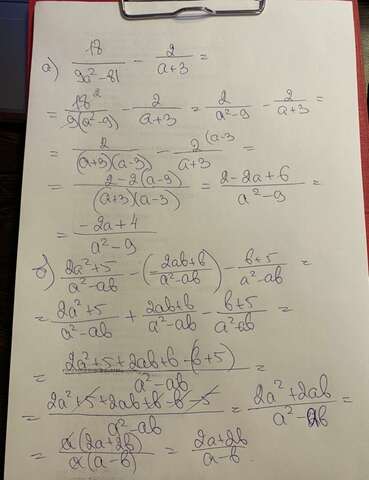 а) 18/(9a²-81) - 2/(a+3) =
= 18²/(9(a²-9)) - 2/(a+3) = 2/(a²-9) - 2/(a+3) =
= 2/((a+3)(a-3)) - 2(a-3/(a+3) =
= (2-2(a-3))/((a+3)(a-3)) = (2-2a+6)/(a²-9) =
= (-2a+4)/(a²-9)
б) (2a²+5)/(a²-ab) - (-(2ab+b)/(a²-ab)) - (b+5)/(a²-ab) =
= (2a²+5)/(a²-ab) + (2ab+b)/(a²-ab) - (b+5)/(a²-ab) =
= (2a²+5+2ab+b-(b+5))/(a²-ab) =
= (2a²+5+2ab+b-b-5)/(a²-ab) = (2a²+2ab)/(a²-ab) =
= a(2a+2b)/(a(a-b)) = (2a+2b)/(a-b)